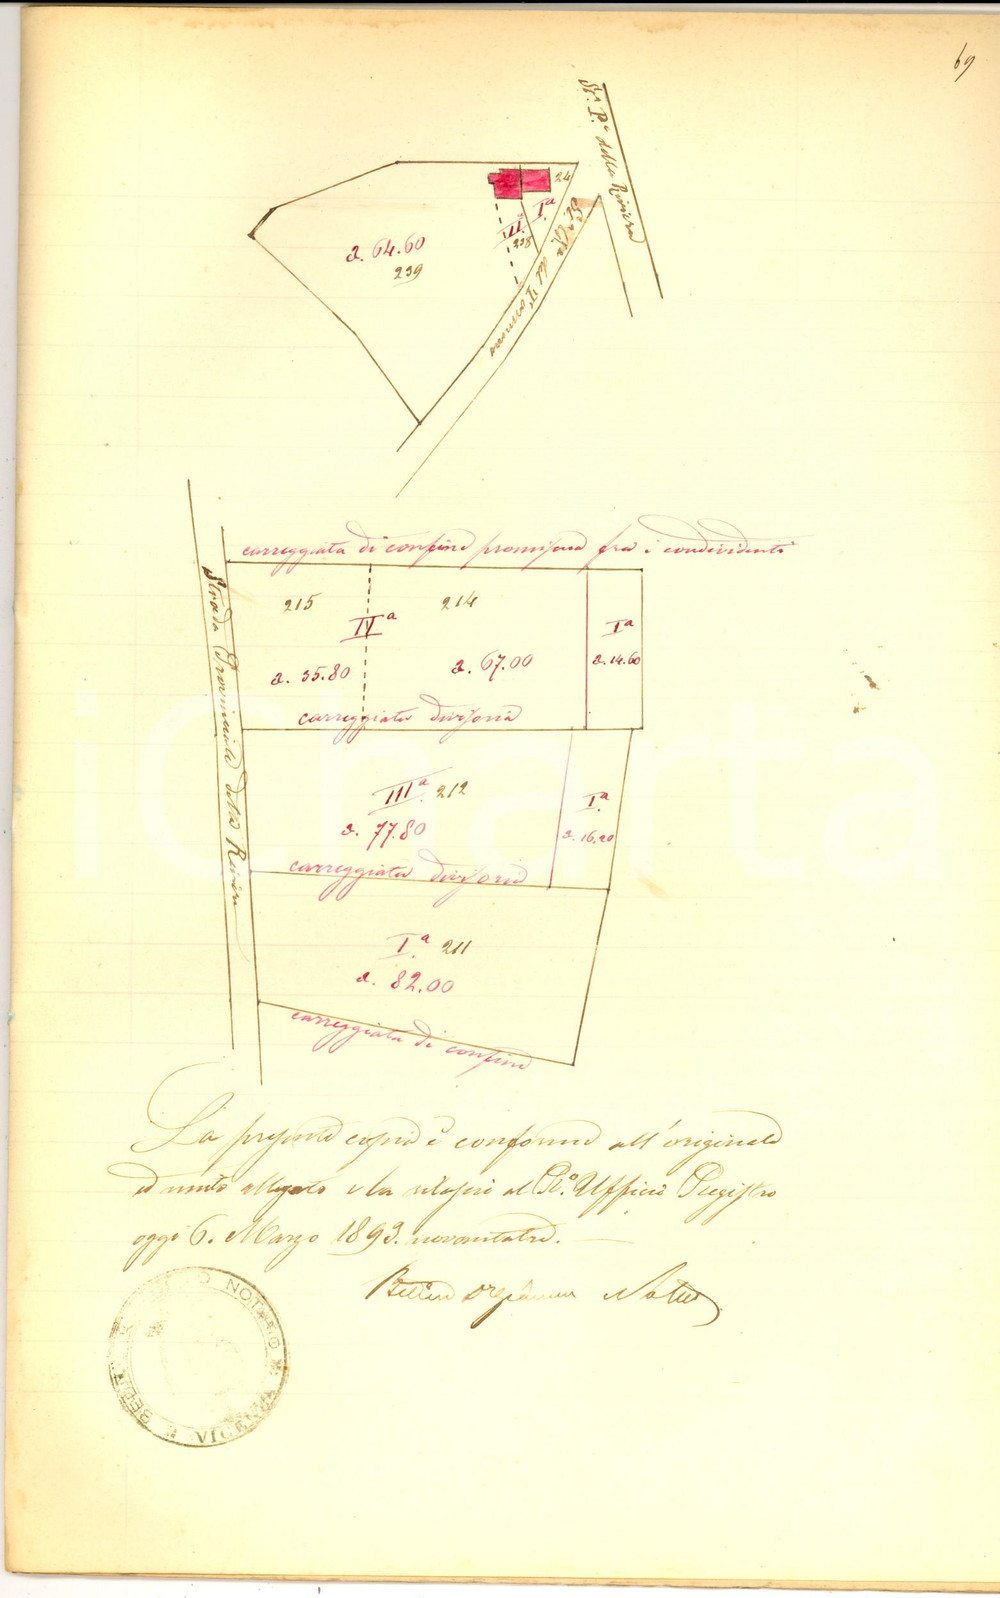 69
St.ª P.ª della Riviera
24
Iª
III.ª
238
a. 64.60
239
carreggiata di confine promiscua fra i condividenti
Strada Provinciale della Riviera
215
214
IVª
Iª
a. 35.80
a. 67.00
a. 14.60
carreggiata divisoria
IIIª. 212
Iª.
a. 77.80
a. 16.20
carreggiata divisoria
Iª. 211
a. 82.00
carreggiata di confine
La presente copia è conforme all'originale
ed unito allegato e la rilascio al R.º Ufficio Registro
oggi 6. Marzo 1893. novantatre.
Notaio
NOTAIO
VICENZA
iCharta